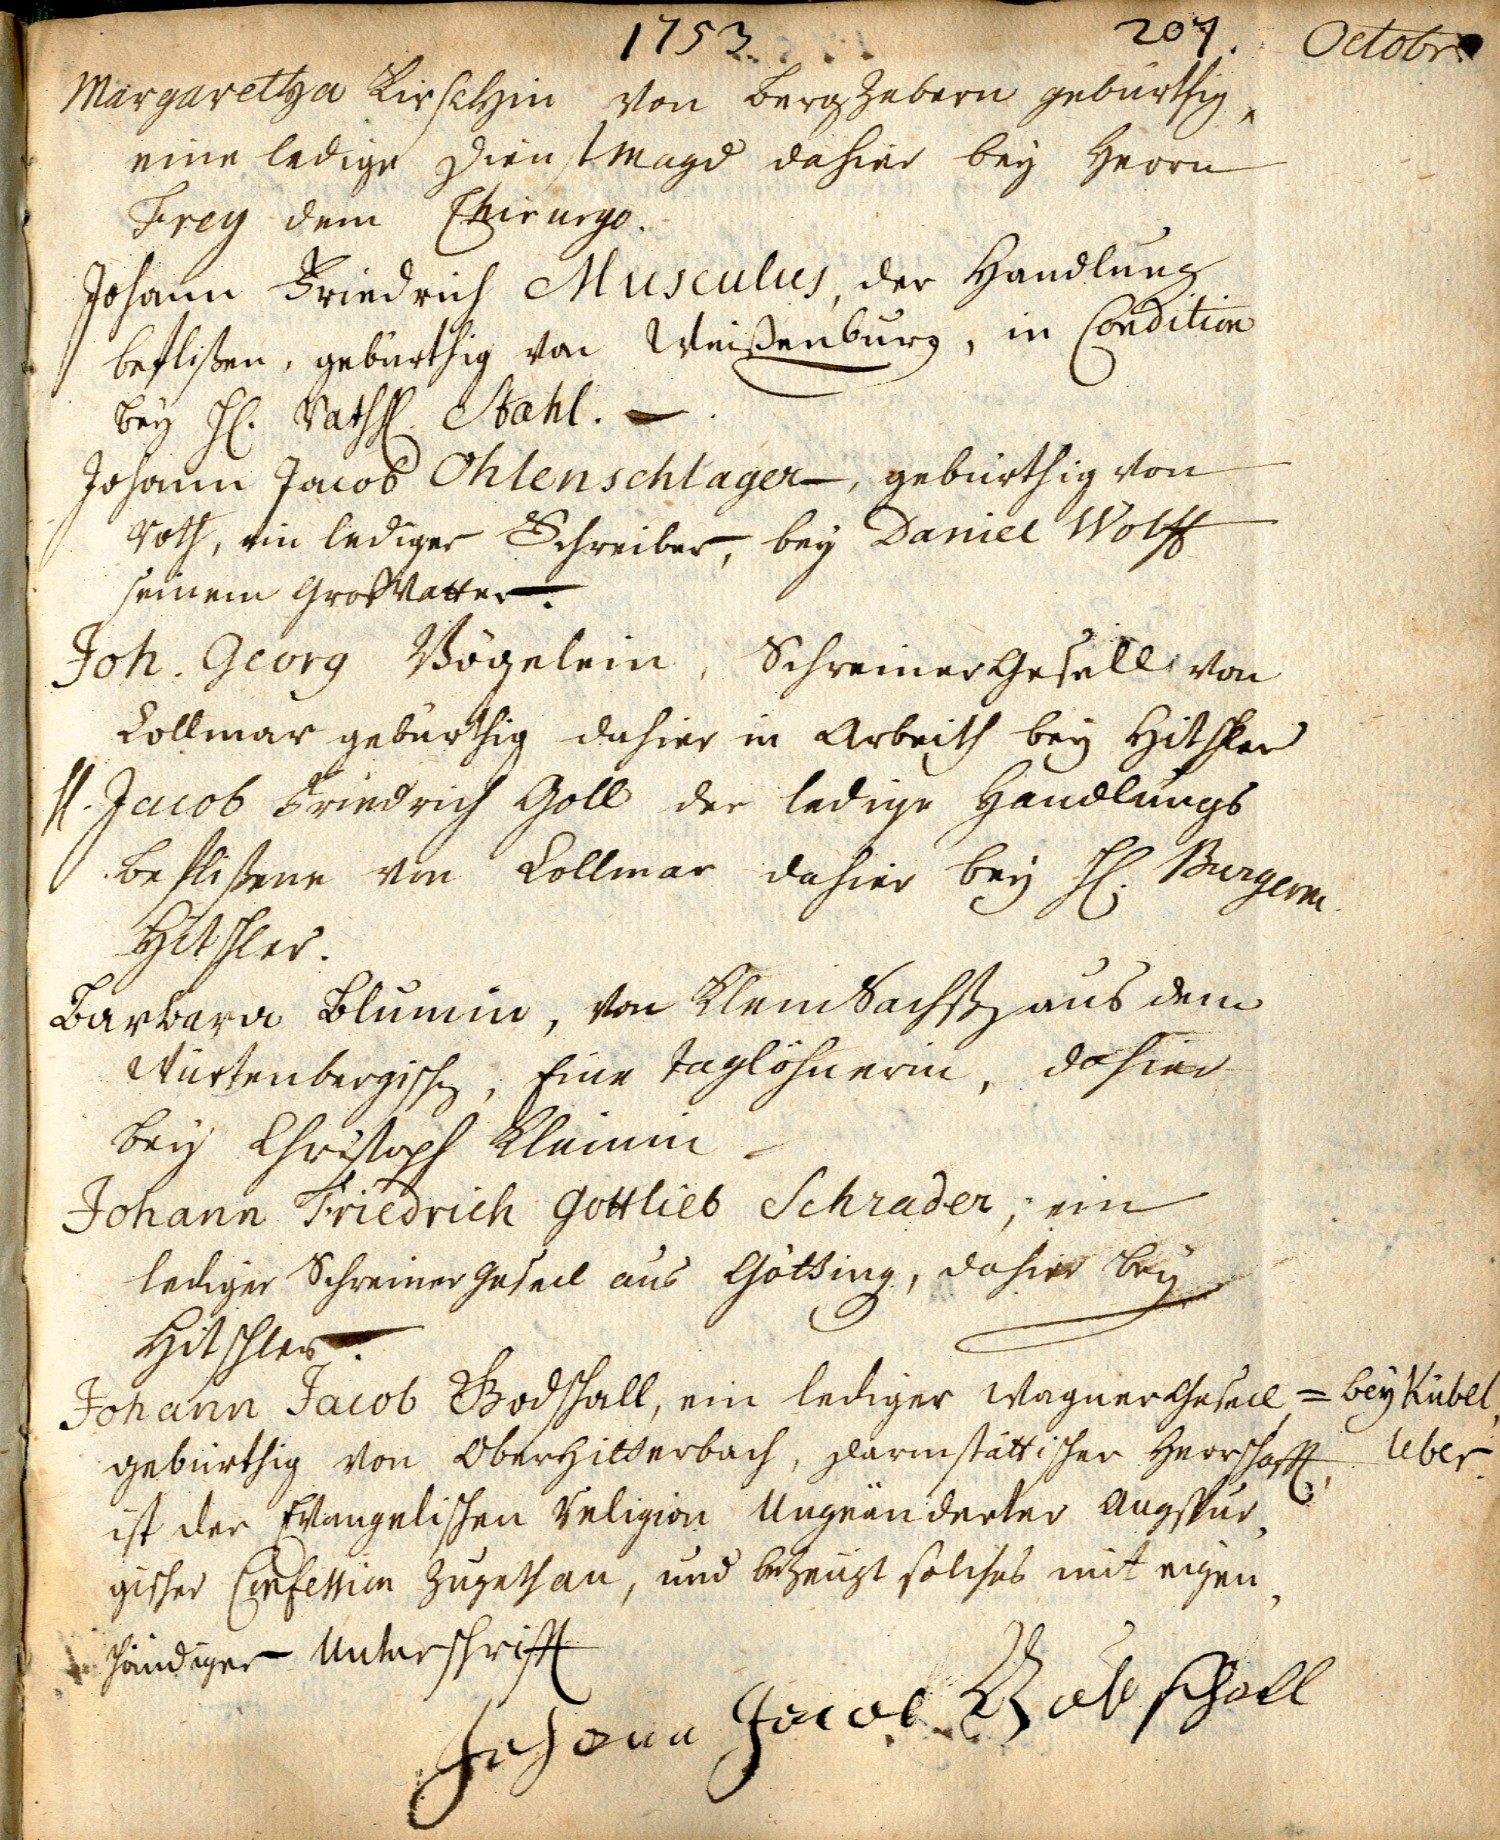 1753. 207. Octobr.
Margaretha Kirschin von Bergzabern gebürthig,
eine ledige Dienstmagd dahier bey Herrn
Frey dem Chirurgo.
Johann Friedrich Musculus, der Handlung
beflißen, gebürthig von Weißenburg, in Condition
bey H. Rathh. Stahl.
Johann Jacob Ohlenschlager, gebürthig von
Roth, ein lediger Schreiber, bey Daniel Wolff
seinem Großvatter.
Joh. Georg Vögelein, Schreiner Gesell von
Collmar gebürthig dahier in Arbeith bey Hitschler
H. Jacob Friedrich Goll der ledige Handlungs
beflißene von Collmar dahier bey H. Burgerm.
Hitschler.
Barbara Blumin, von KleinSachß aus dem
Würtenbergisch, Eine Taglöhnerin, dahier
bey Christoph Kleinin
Johann Friedrich Gottlieb Schrader, ein
lediger Schreiner Gesell aus Götting, dahier bey
Hitschler.
Johann Jacob Bodschall, ein lediger Wagner Gesell, = bey Kübel,
gebürthig von Oberhitterbach, Darmstättischer Herrschafft, Uber
ist der Evangelischen Religion Ungeänderter Augspur,
gischer Confession zugethan, und bezeugt solches mit eigen,
händiger Unterschrifft
Johann Jacob Bodschall